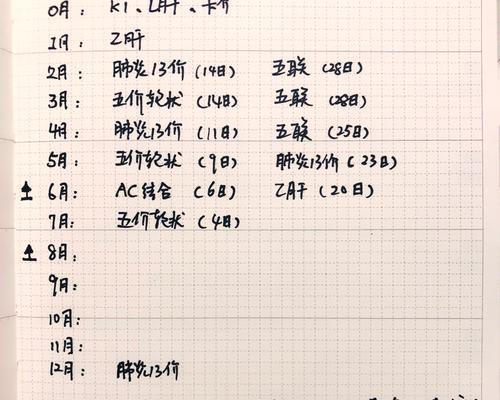 0月: K1、乙肝、卡介
1月: 乙肝
2月: 肺炎13价(14日) 五联(28日)
3月: 五价轮状(14日) 五联(28日)
4月: 肺炎13价(11日) 五联(25日)
5月: 五价轮状(9日) 肺炎13价(23日)
6月: AC结合(6日) 乙肝(20日)
7月: 五价轮状(4日)
8月:
9月:
10月:
11月:
12月: 肺炎13价